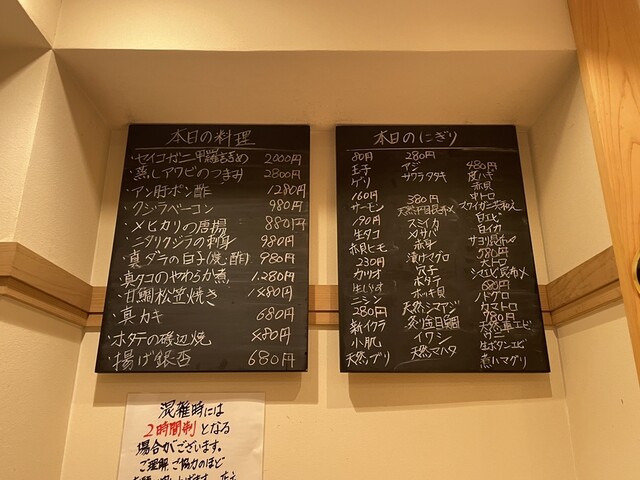 本日の料理
・セイコガニ甲羅詰め 2000円
・蒸しアワビのつまみ 2800円
・アン肝ポン酢 1280円
・クジラベーコン 980円
・メヒカリの唐揚 880円
・ニタリクジラの刺身 980円
・真ダラの白子(焼・酢) 980円
・真タコのやわらか煮 1,280円
・甘鯛松笠焼き 1480円
・真カキ 680円
・ホタテの磯辺焼 480円
・揚げ銀杏 680円
本日のにぎり
80円
玉子
ゲソ
160円
サーモン
190円
生タコ
赤貝ヒモ
230円
カツオ
生しらす
ニシン
280円
新イクラ
小肌
天然ブリ
280円
アジ
サワラタタキ
380円
天然平目昆布〆
スミイカ
〆サバ
赤身
漬けマグロ
穴子
ホタテ
ホッキ貝
天然シマアジ
炙り金目鯛
イワシ
天然マハタ
480円
皮ハギ
赤貝
中トロ
ズワイガニ
白エビ
白イカ
サヨリ昆布〆
580円
大トロ
シマエビ昆布〆
680円
ノドグロ
大トロ
780円
天然車エビ
ウニ
生ボタンエビ
煮ハマグリ
混雑時には
2時間制となる
場合がございます。
ご理解、ご協力のほど